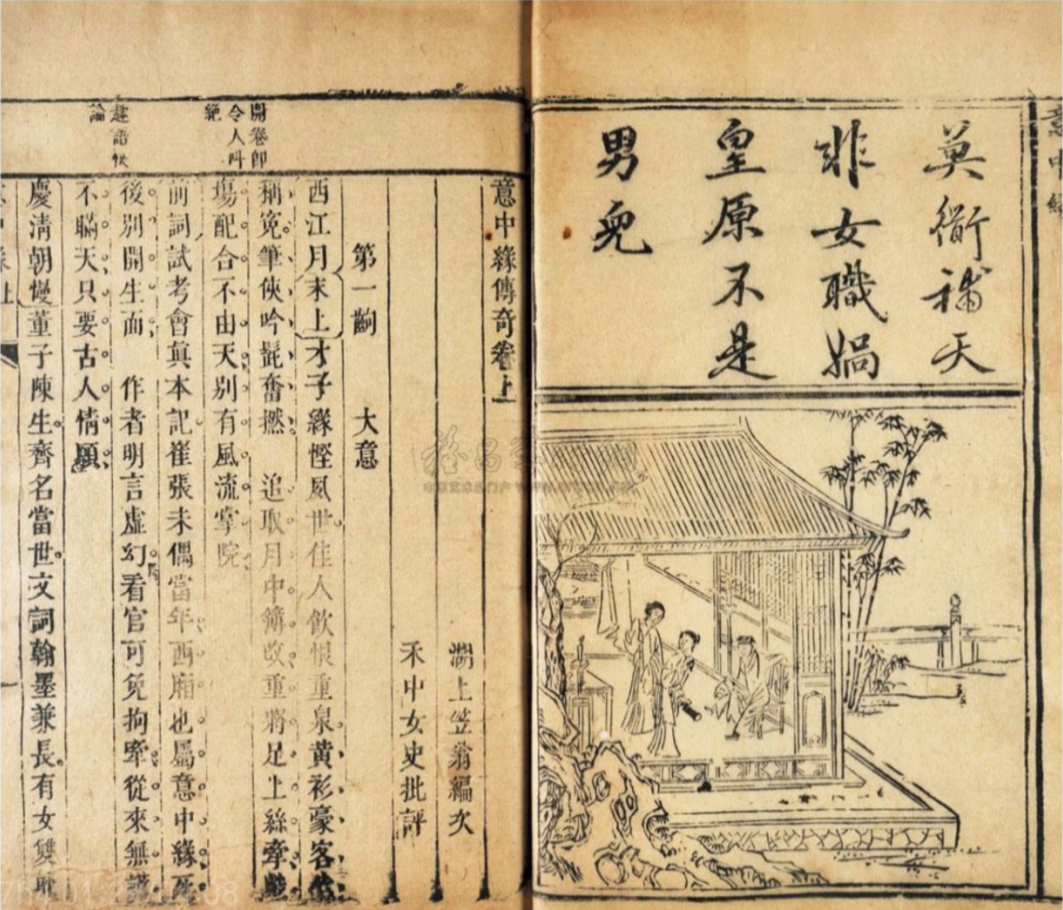 意中緣
莫衒補天
非女職媧
皇原不是
男兒
意中緣傳奇卷上
湖上笠翁編次
禾中女史批評
第一齣 大意
西江月末上才子緣慳夙世佳人飲恨重泉黃衫豪客代
稱冤筆俠吟髭奮撚 追取月中簿改重將足上絲牽戲
場配合不由天別有風流掌院
前詞試考會真本記崔張未偶當年西廂也屬意中緣死
後別開生面 作者明言虛幻看官可免拘牽從來無謊
不瞞天只要古人情願
慶清朝慢董子陳生齊名當世文詞翰墨兼長有女雙耽
開卷即
令人叫
絕
趣語快
論